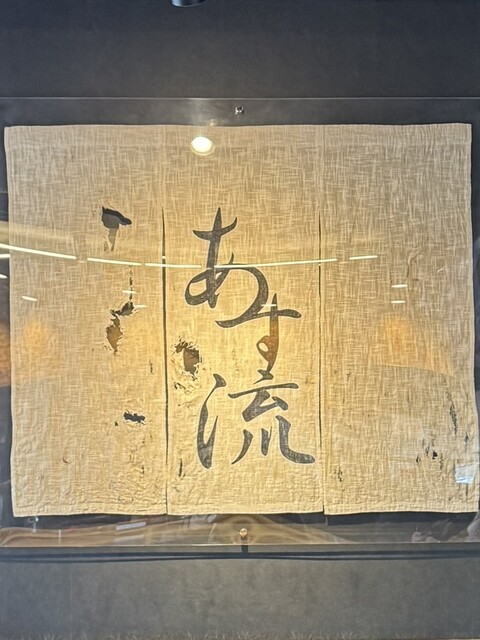 あす流